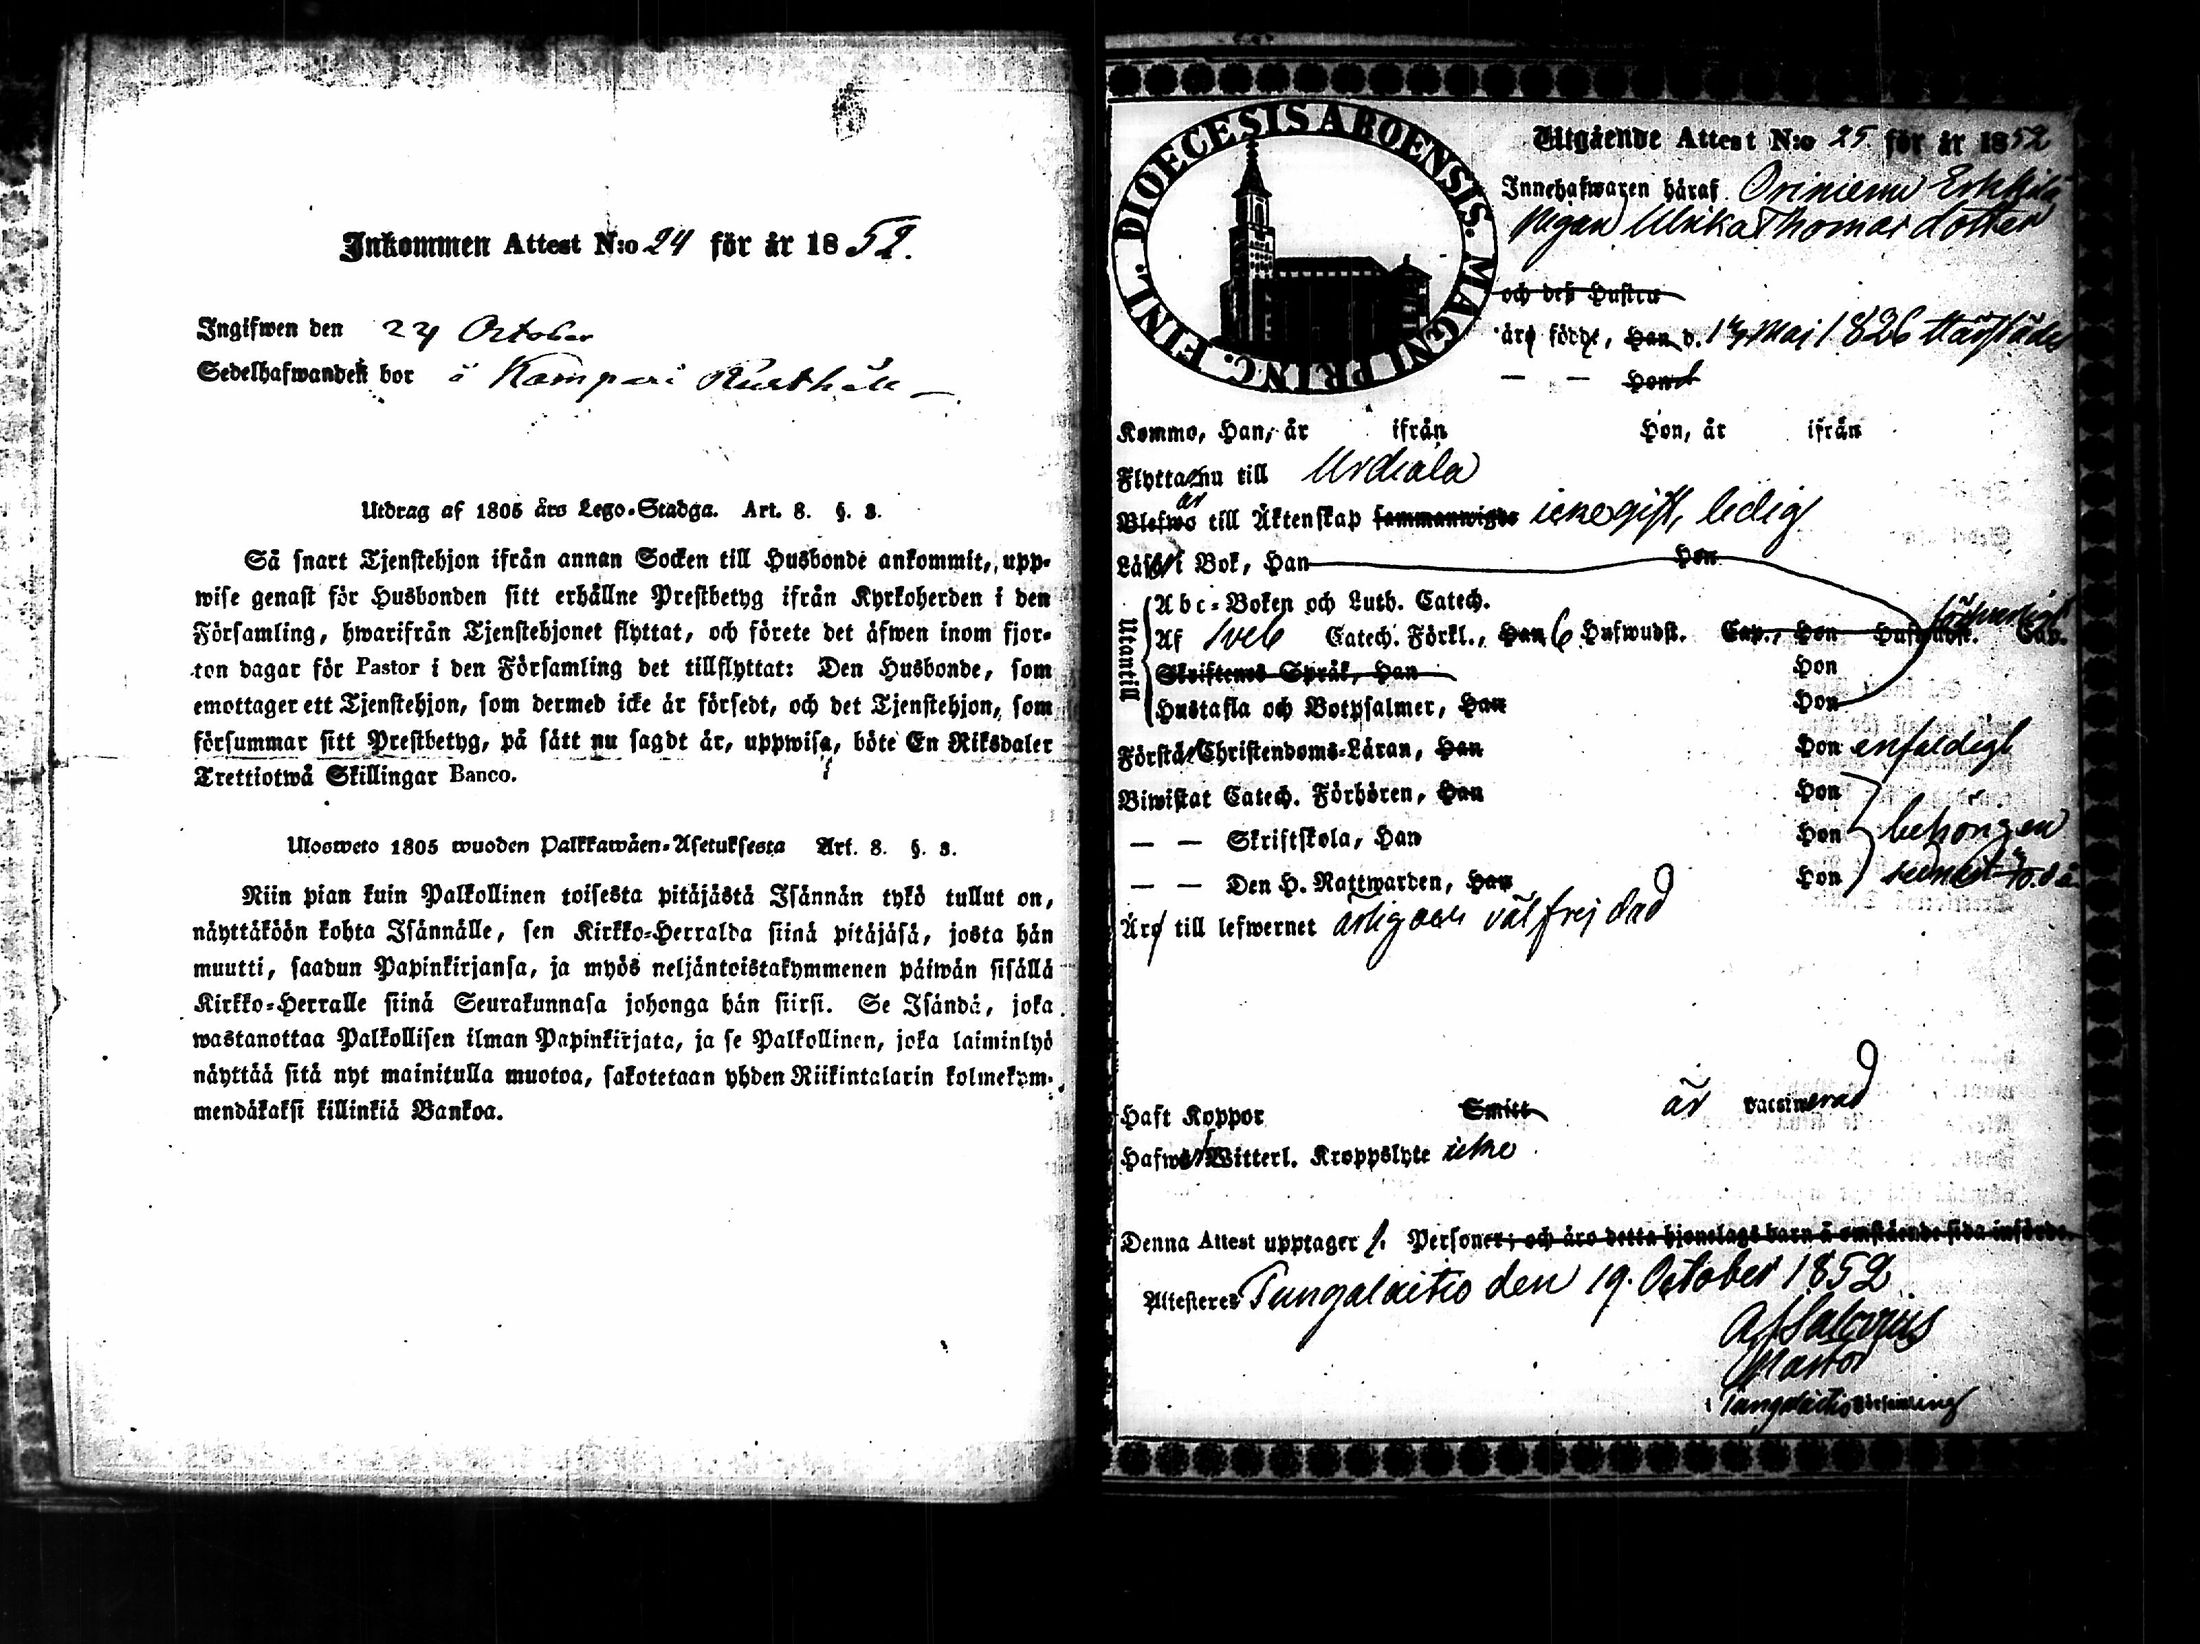 Inkommen Attest N:o 24 för år 1852.
Ingifwen den 24 October
Sedelhafwanden bor å Kampari
Utdrag af 1805 års Lego-Stadga. Art. 8. §. 8.
Så snart Tjenstehjon ifrån annan Socken till Husbonde ankommit, upp-
wise genast för Husbonden sitt erhållne Prestbetyg ifrån Kyrkoherden i den
Församling, hwarifrån Tjenstehjonet flyttat, och förete det äfwen inom fjor-
ton dagar för Pastor i den Församling det tillflyttat: Den Husbonde, som
emottager ett Tjenstehjon, som dermed icke är försedt, och det Tjenstehjon, som
försummar sitt Prestbetyg, på sätt nu sagdt är, uppwisa, böte En Riksdaler
Trettiotwå Skillingar Banco.
Ulosweto 1805 wuoden Palkkawäen-Asetuksesta Art. 8. §. 8.
Niin pian kuin Palkollinen toisesta pitäjästä Isännän tykö tullut on,
näyttäköön kohta Isännälle, sen Kirkko-Herralda siinä pitäjäsä, josta hän
muutti, saadun Papinkirjansa, ja myös neljäntoistakymmenen päiwän sisällä
Kirkko-Herralle siinä Seurakunnasa johonga hän siirsi. Se Isändä, joka
wastanottaa Palkollisen ilman Papinkirjata, ja se Palkollinen, joka laiminlyö
näyttää sitä nyt mainitulla muotoa, sakotetaan yhden Riikintalarin kolmekym-
mendäkaksi killinkiä Bankoa.
DIOECESIS ABOENSIS. MAGNI PRINC. FINL.
Utgående Attest N:o 25 för år 1852
Innehafwaren häraf Oriniemi Erkkilä
Pigan Ulrika Thomas dotter
och deß Hustru
äro födde, Han d. 17 Maj 1826 härstädes
— — Hon d
Kommo, Han, år ifrån Hon, år ifrån
Flytta nu till Urdiala
är
Blefwo till Äktenskap sammanwigde icke gift, ledig
Läsa i Bok, Han Hon
Utantill
Abc-Boken och Luth. Catech.
försvarligt
Af Sveb Catech. Förkl., Han 6 Hufwudst. Cap., Hon Hufwudst. Cap.
Skriftenes Språk, Han Hon
Hustafla och Botpsalmer, Han Hon
Förstå Christendoms-Läran, Han Hon enfaldigt
Biwistat Catech. Förhören, Han Hon
— — Skriftskola, Han Hon behörigen
— — Den H. Nattwarden, Han Hon senast
Äro till lefwernet ärlig och väl frejdad
Haft Koppor Smitt är vaccinerad
Hafwa Witterl. Kroppslyte icke
Denna Attest upptager 1. Personer; och äro detta hjonelags barn å omstående sida införde.
Altesteres Tungelaitio den 19. October 1852
Pastor
i Tungelaitio Församling